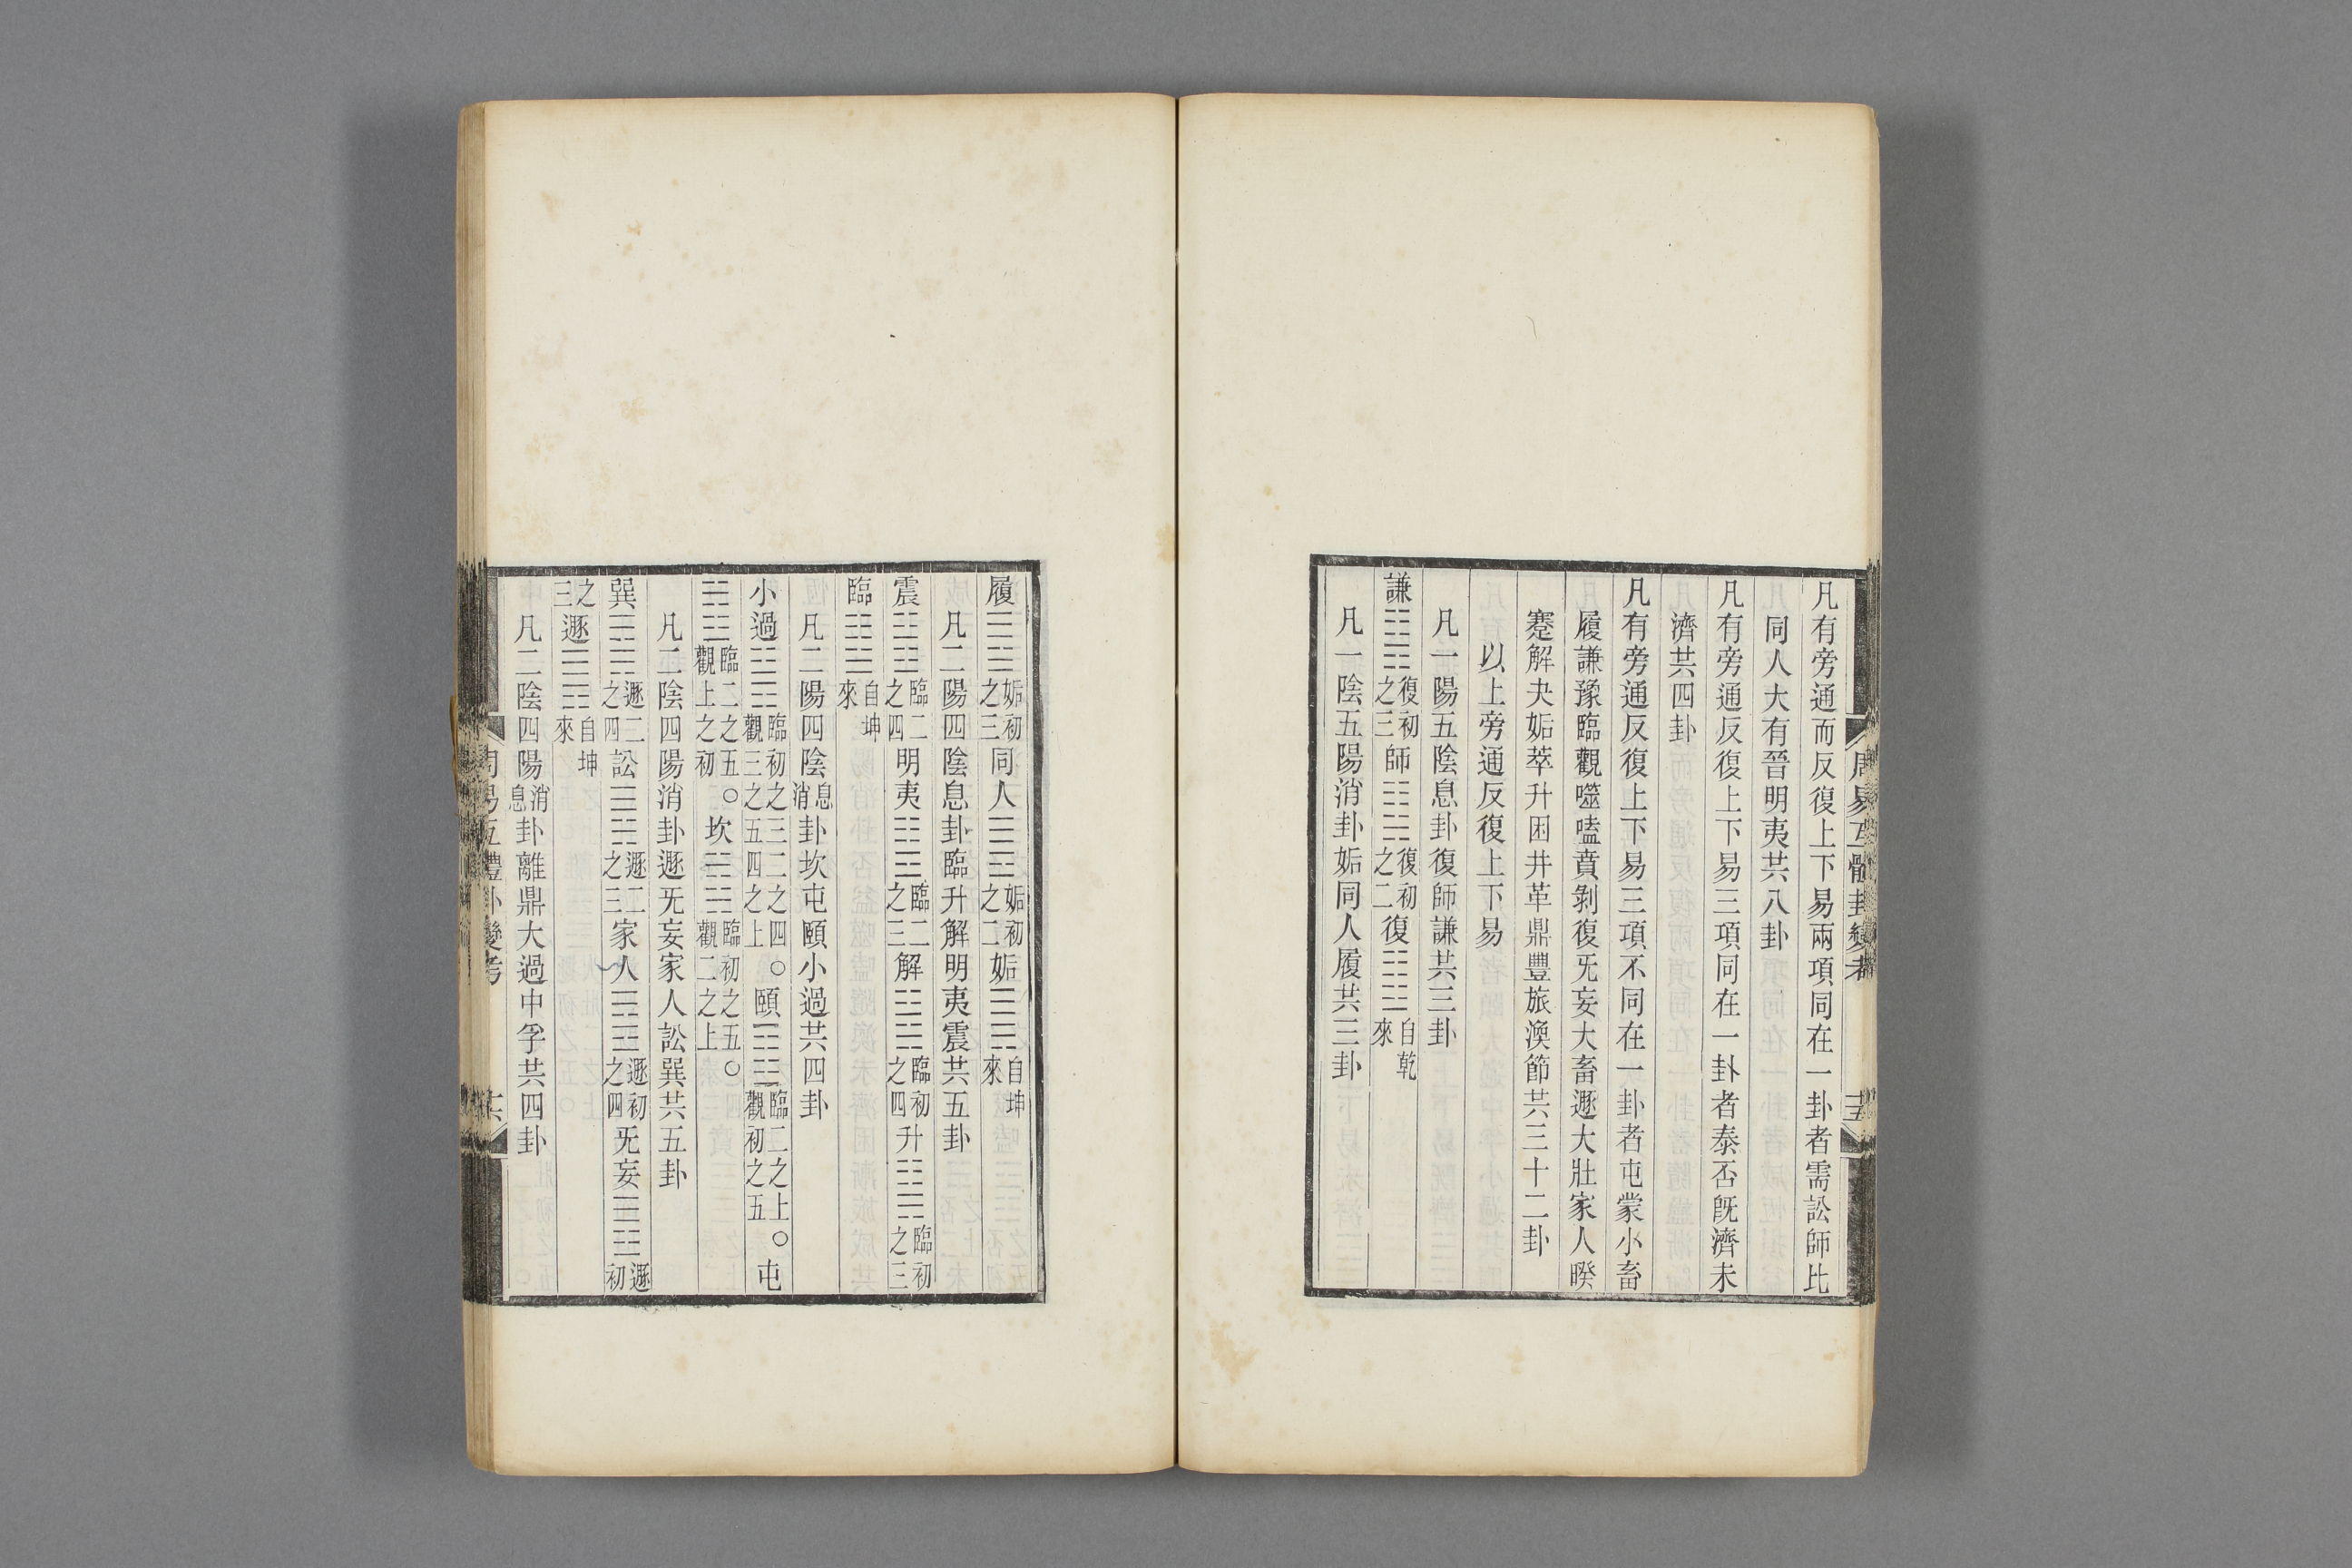 周易互體卦變考 十五
凡有旁通而反復上下易兩項同在一卦者需訟師比
同人大有晉明夷共八卦
凡有旁通反復上下易三項同在一卦者泰否旣濟未
濟共四卦
凡有旁通反復上下易三項不同在一卦者屯蒙小畜
履謙豫臨觀噬嗑賁剝復无妄大畜遯大壯家人睽
蹇解夬姤萃升困井革鼎豐旅渙節共三十二卦
以上旁通反復上下易
凡一陽五陰息卦復師謙共三卦
謙䷎復初之三師䷆復初之二復䷗自乾來
凡一陰五陽消卦姤同人履共三卦
履䷉姤初之三同人䷌姤初之二姤䷫自坤來
凡二陽四陰息卦臨升解明夷震共五卦
震䷲臨二之四明夷䷣臨二之三解䷧臨初之四升䷭臨初之三
臨䷒自坤來
凡二陽四陰息消卦坎屯頤小過共四卦
小過䷽臨初之三二之四○觀三之五四之上頤䷚臨二之上○觀初之五屯
䷂臨二之五○觀上之初坎䷜臨初之五○觀二之上
凡二陰四陽消卦遯无妄家人訟巽共五卦
巽䷸遯二之四訟䷅遯二之三家人䷤遯初之四无妄䷘遯初
之三遯䷠自坤來
凡二陰四陽消息卦離鼎大過中孚共四卦
周易互體卦變考 十六